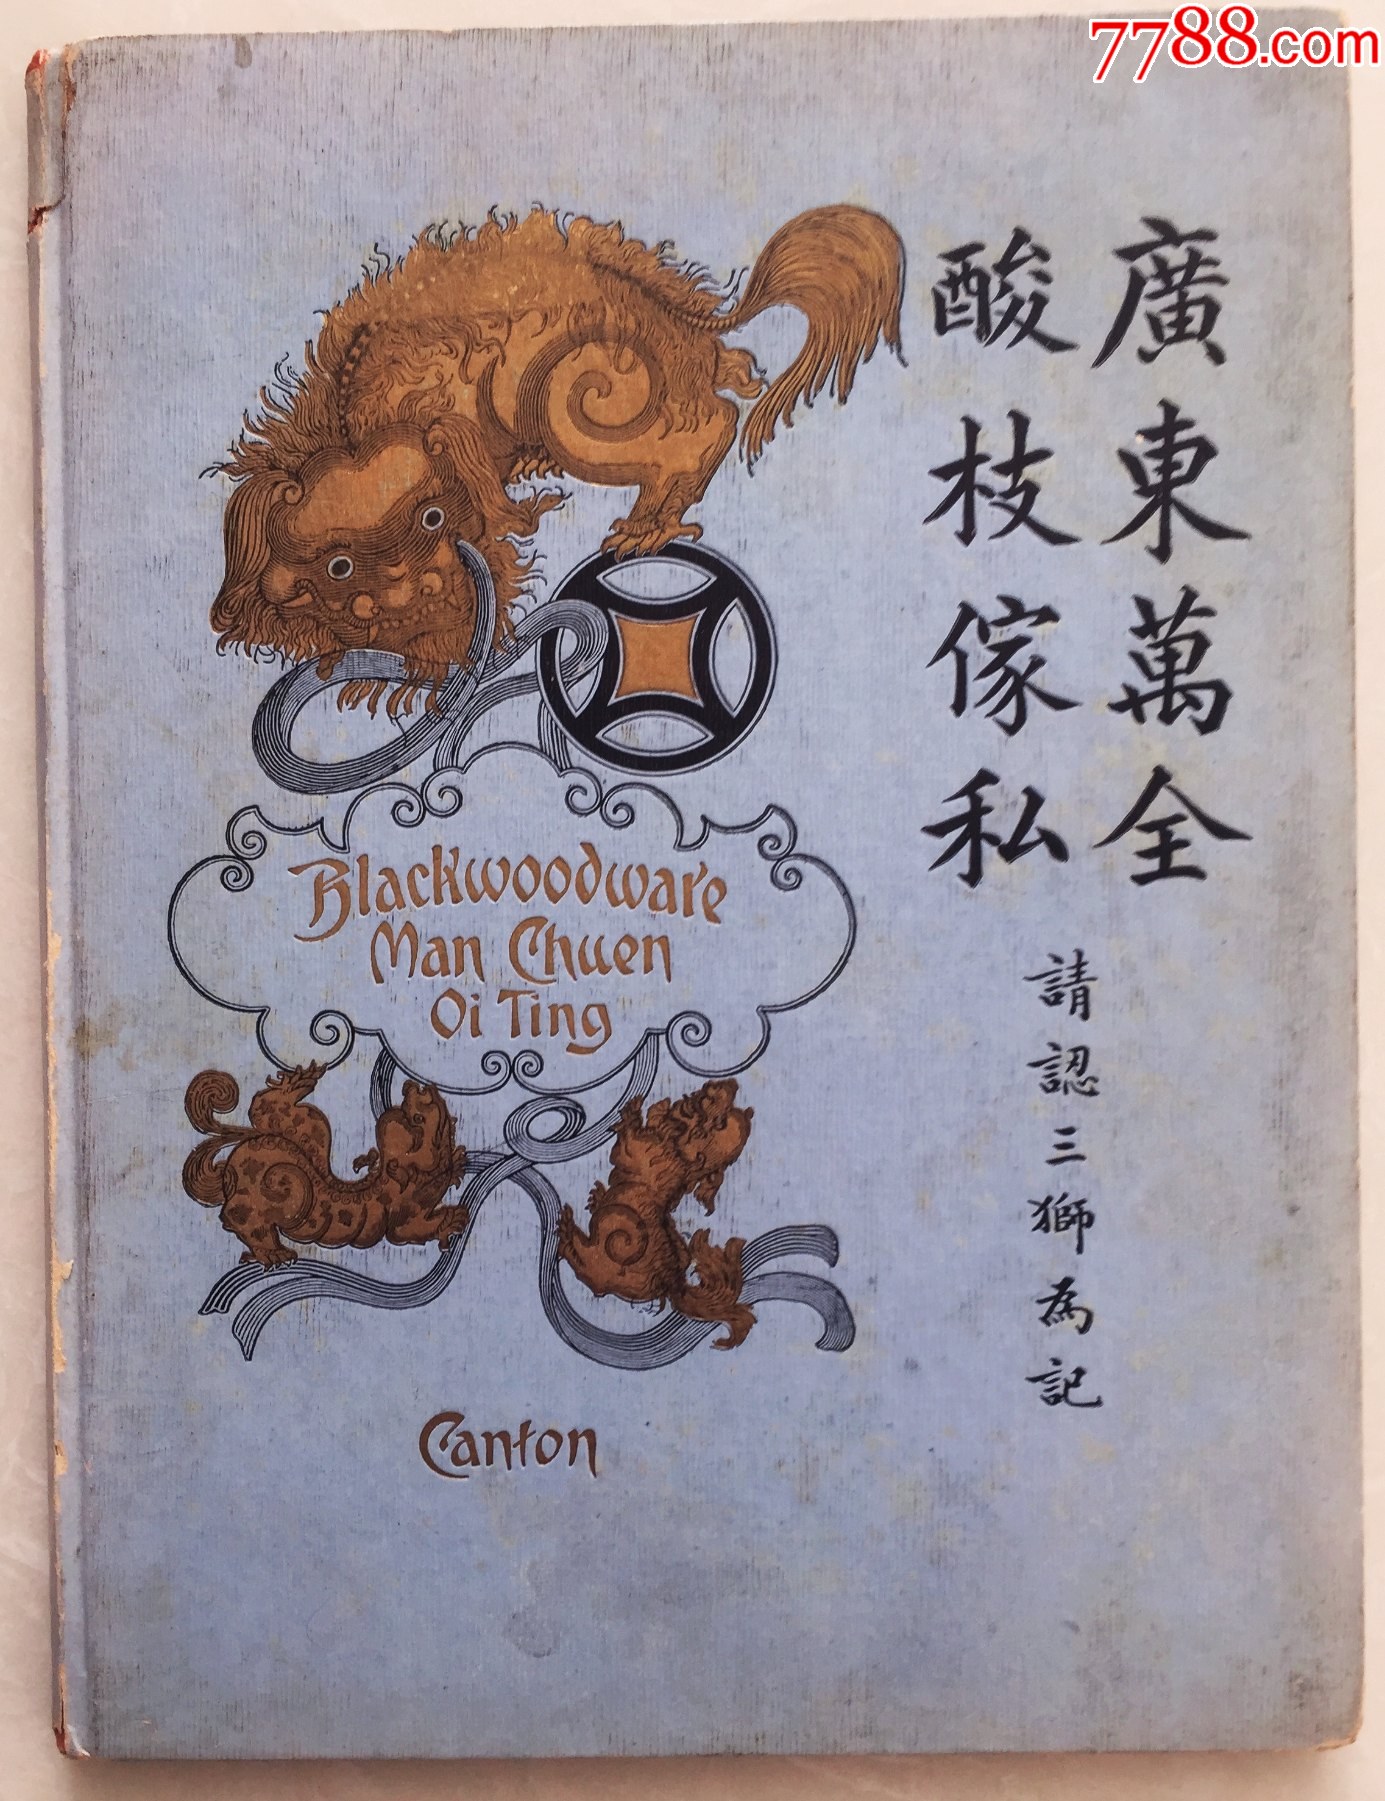 7788.com
廣東萬全
酸枝傢私
請認三獅為記
Blackwoodware
Man Chuen
Oi Ting
Canton